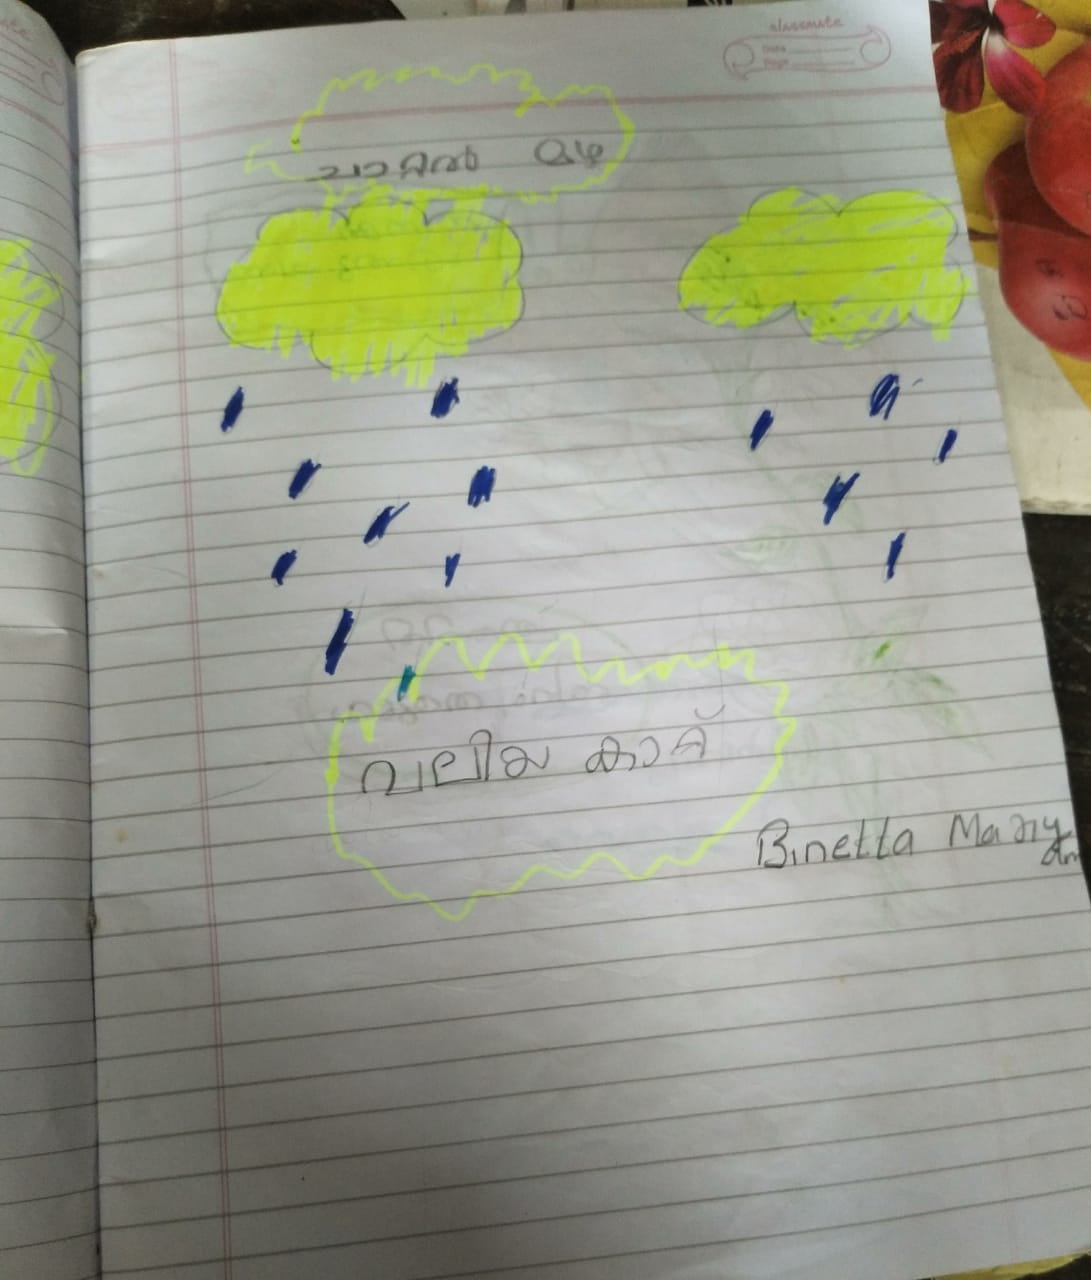 classmate
Date
Page
ചാറ്റൽ മഴ
വലിയ കാറ്റ്
Binetta Mariyam